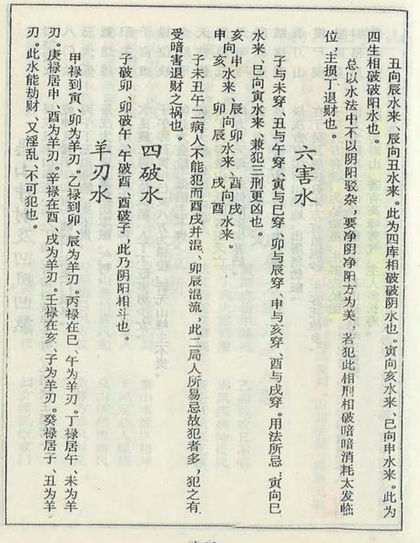 丑向水来、辰向丑水来。此为四库相破破阴水也。寅向亥水来、巳向申水来。此为
四生相破破阳水也。
总以水法中不以阴阳驳杂，要净阴净阳方为美，若犯此相刑相破暗暗消耗太发临
位，主损丁退财也。
六害水
子与未穿、丑与午穿、寅与巳穿、卯与辰穿、申与亥穿、酉与戌穿。用法所忌：寅向巳
水来、巳向寅水来，兼犯三刑更凶也。
申向亥水来、辰向卯水来、酉向戌水来、
丑向亥申水来、卯向辰水来、戌向酉水来。
子未丑午二病人不能犯而酉戌并混、卯辰混流，此二局人所易忌故犯者多，犯之有
受暗害退财之祸也。
四破水
子破卯、卯破午、午破酉、酉破子，此乃阴阳相斗也。
羊刃水
甲禄到寅、卯为羊刃。乙禄到卯、辰为羊刃。丙禄在巳、午为羊刃。丁禄在午、未为羊
刃。庚禄居申、酉为羊刃。辛禄在酉、戌为羊刃。壬禄在亥、子为羊刃。癸禄居子、丑为羊
刃。此水能劫财、又淫乱、不可犯也。